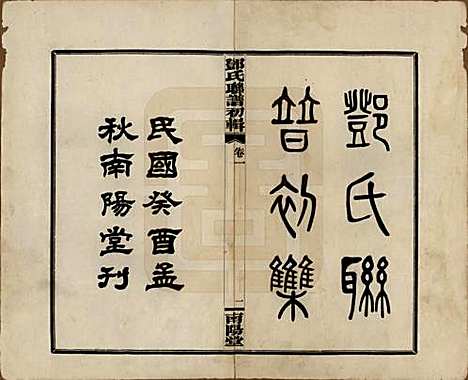 鄧氏聯
普初集
鄧氏聯譜初輯
卷一
一
南陽堂
民國癸酉孟
秋南陽堂刊